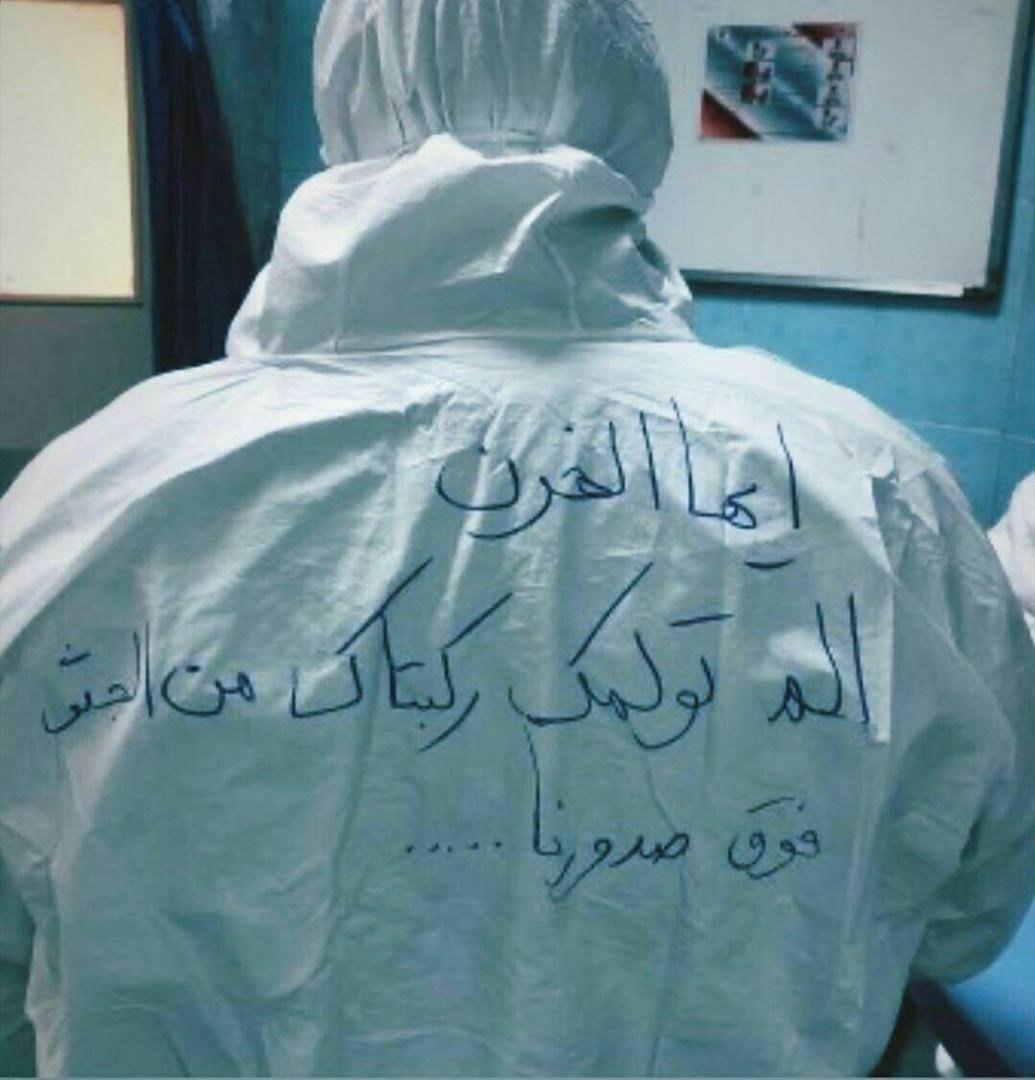 ايها الحزن
الم تولمك ركبتاك من الجثو
فوق صدورنا .....